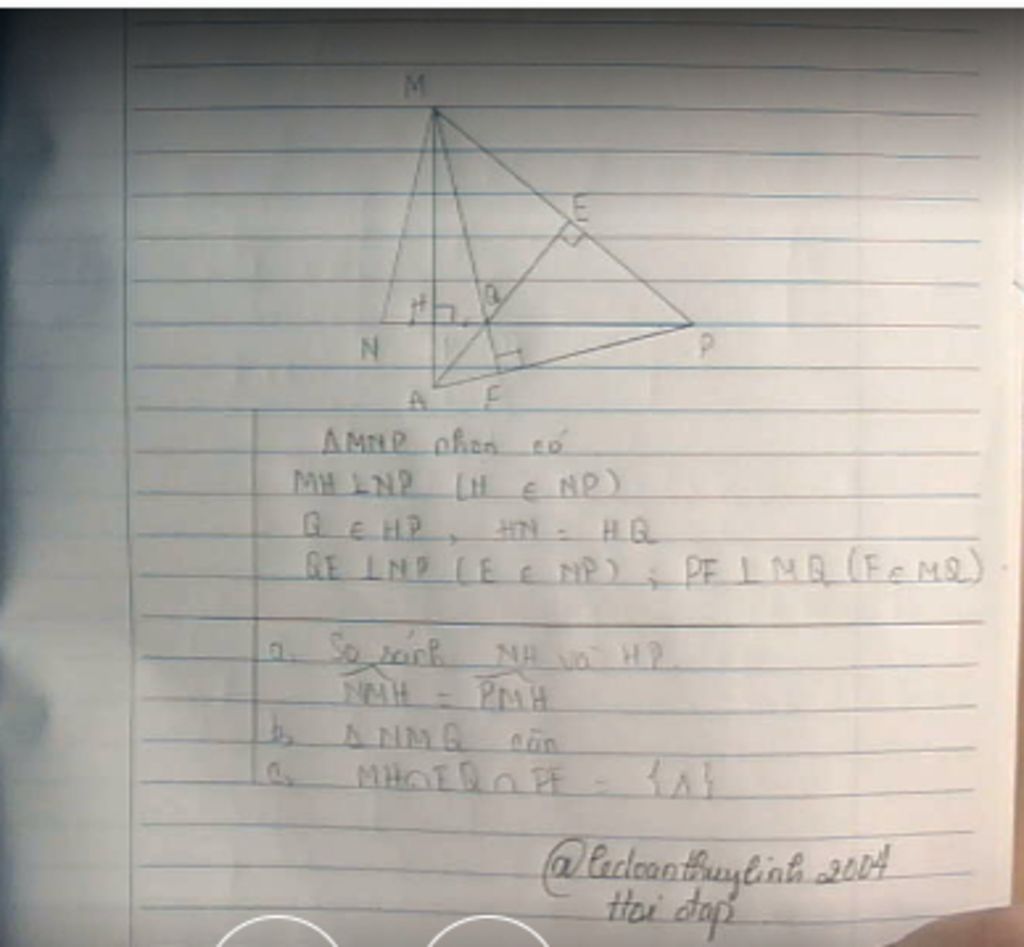 M
E
H
Q
N
P
A
F
ΔMNP nhọn có
MH ⊥ NP (H ∈ NP)
Q ∈ HP, HN = HQ
QE ⊥ NP (E ∈ NP) ; PF ⊥ MQ (F ∈ MQ)
a. So sánh NH và HP.
NMH = PMH
b. ΔNMQ cân
c. MH ∩ EQ ∩ PF = {A}
@ledoanthuylinh 2004
Hoi dap